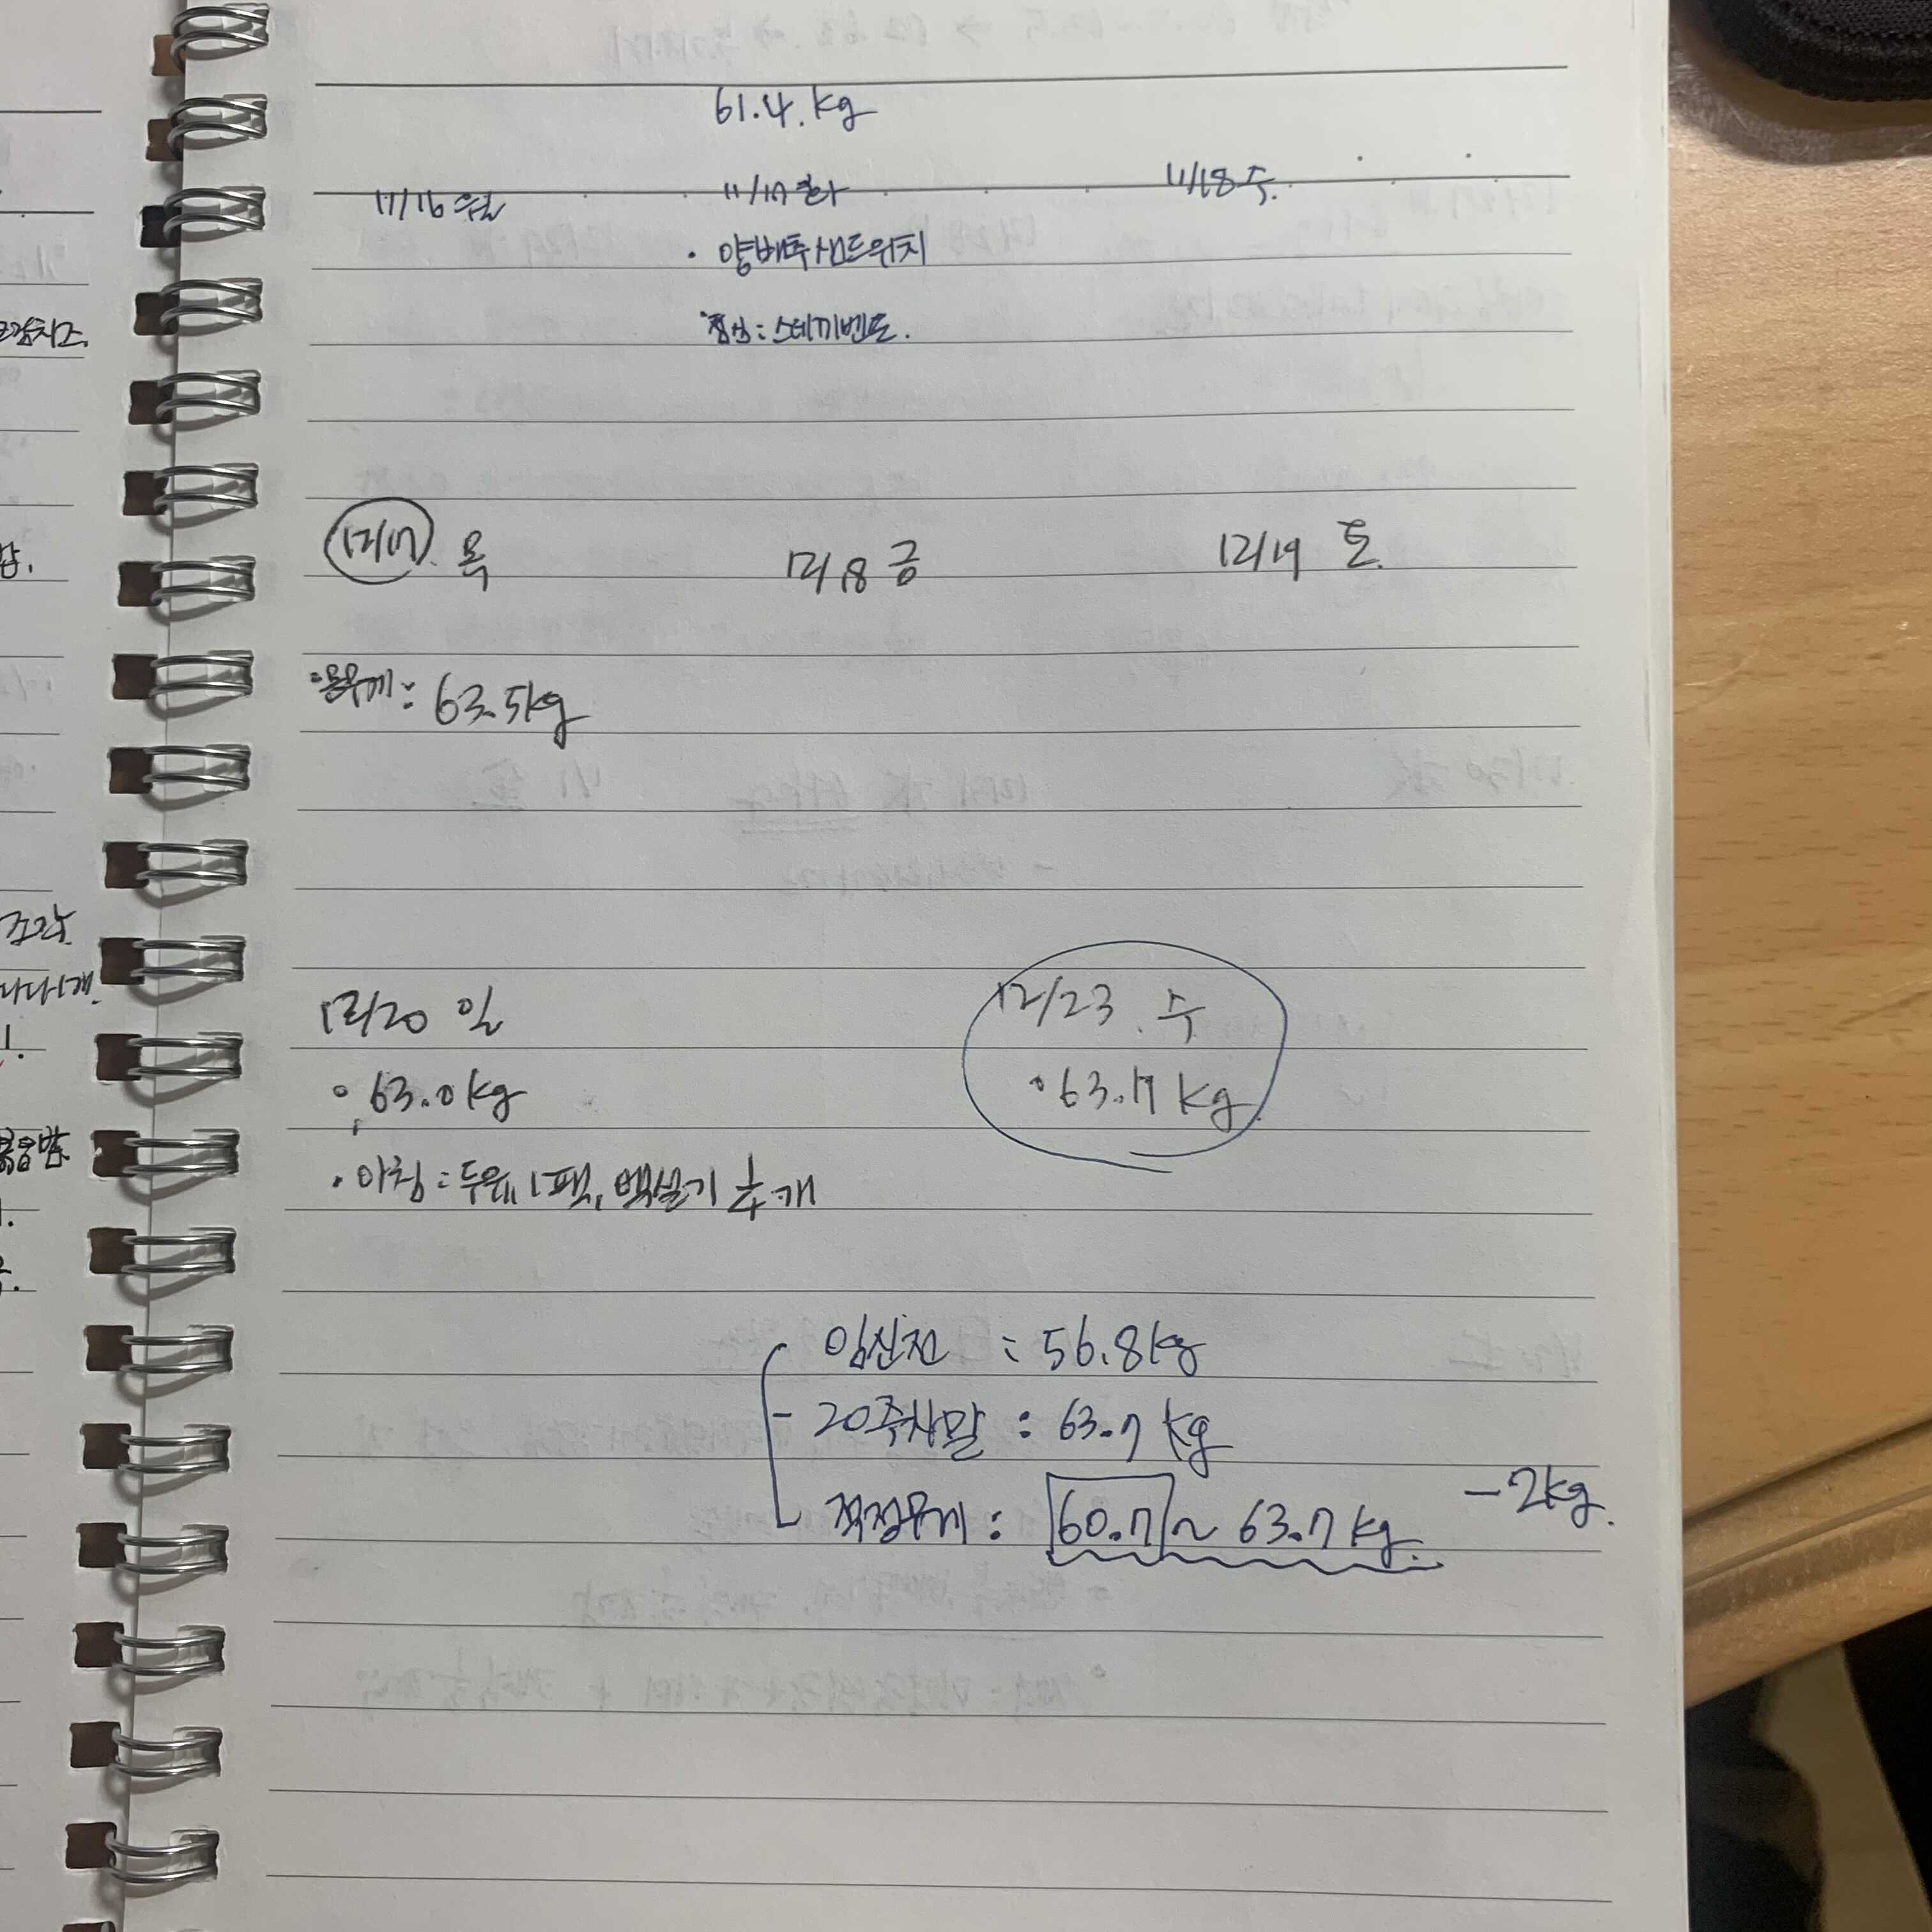 61.4.kg
11/16 월 11/17 화 11/18 수.
· 양배추샌드위치
점심: 스테끼벤또.
12/17. 목 12/18 금 12/19 토.
몸무게: 63.5kg
12/20 일 12/23. 수
63.0kg 63.7 kg.
· 아침: 두유 1팩, 백설기 1/4개
임신전 : 56.8kg
- 20주차말 : 63.7 kg
적정무게: 60.7 ~ 63.7 kg. -2kg.
조각.